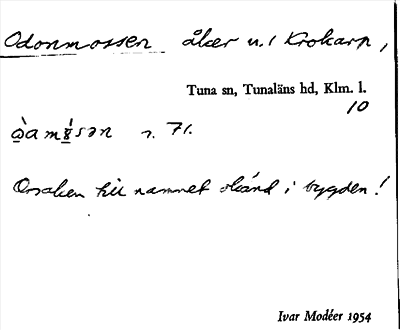 Odonmossen åker u. / Krokarp,
Tuna sn, Tunaläns hd, Klm. l.
10
s. 71.
Orsaken till namnet okänd i bygden!
Ivar Modéer 1954